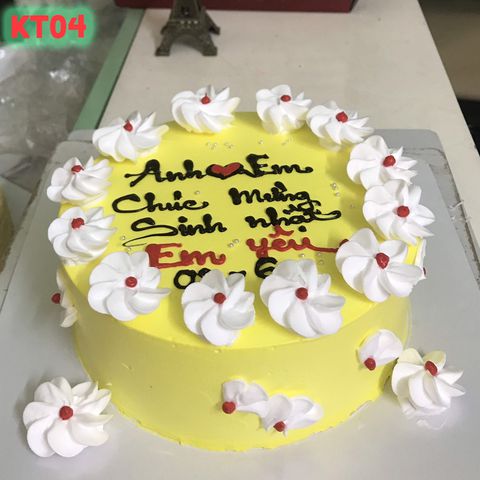 KT04
Anh ❤ Em
Chúc Mừng
Sinh nhật
Em yêu